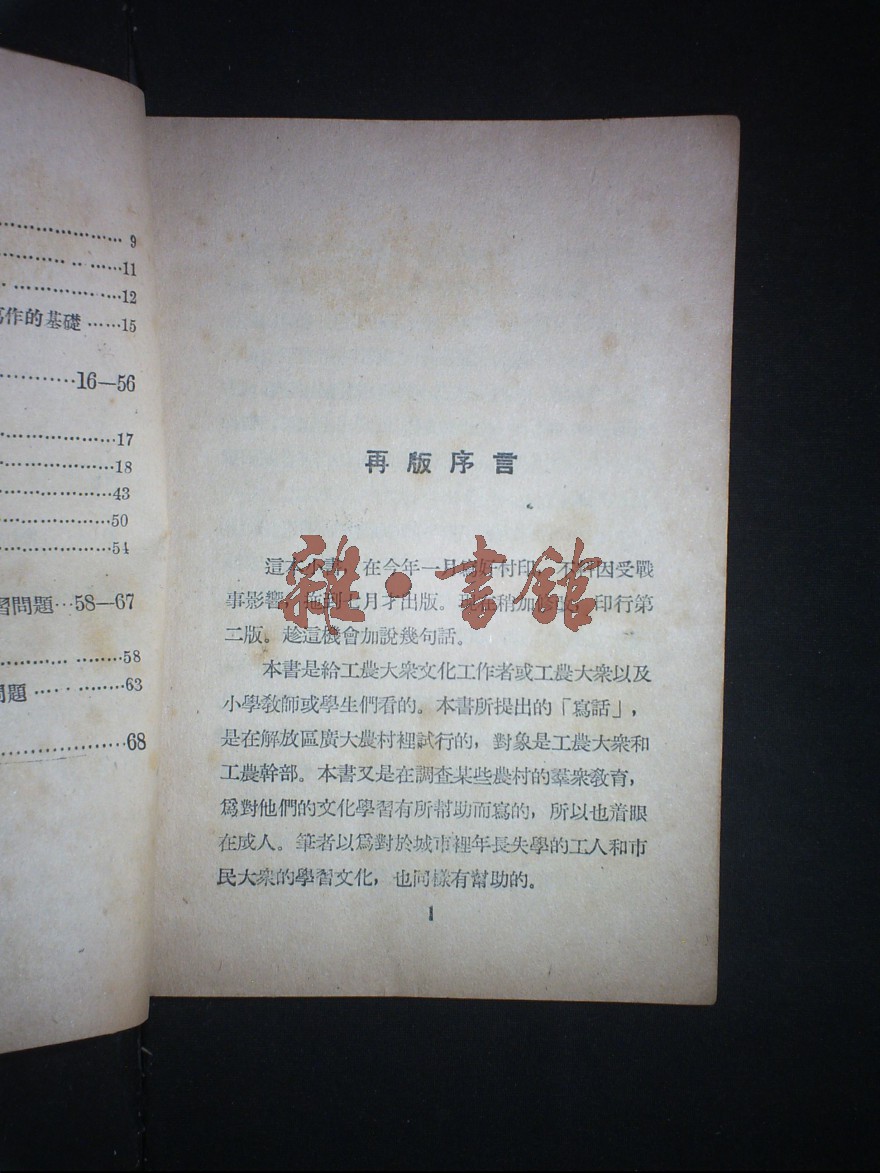 9
11
12
作的基礎……15
16—56
17
18
43
50
54
習問題…58—67
58
問題……63
68
再版序言
這本小書，在今年一月寫好付印，不料因受戰
事影響，拖到七月才出版。現在稍加，印行第
二版。趁這機會加說幾句話。
本書是給工農大衆文化工作者或工農大衆以及
小學敎師或學生們看的。本書所提出的「寫話」，
是在解放區廣大農村裡試行的，對象是工農大衆和
工農幹部。本書又是在調查某些農村的羣衆敎育，
爲對他們的文化學習有所幫助而寫的，所以也着眼
在成人。筆者以爲對於城市裡年長失學的工人和市
民大衆的學習文化，也同樣有幫助的。
1
雜·書館